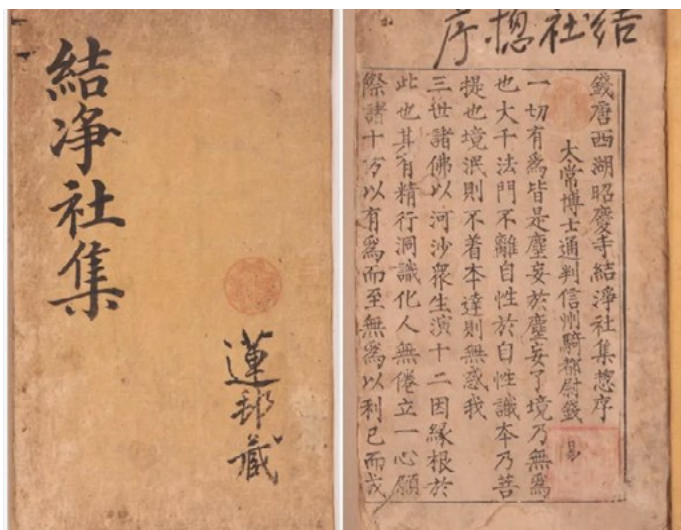 結净社集
蓮邦藏
结社揔序
錢唐西湖昭慶寺結淨社集惣序
太常博士通判信州騎都尉錢 易
一切有爲皆是塵妄於塵妄了境乃無爲
也大千法門不離自性於自性識本乃菩
提也境泯則不着本達則無惑我
三世諸佛以河沙衆生演十二因緣根於
此也其有精行洞識化人無倦立一心願
際諸十方以有爲而至無爲以利已而成